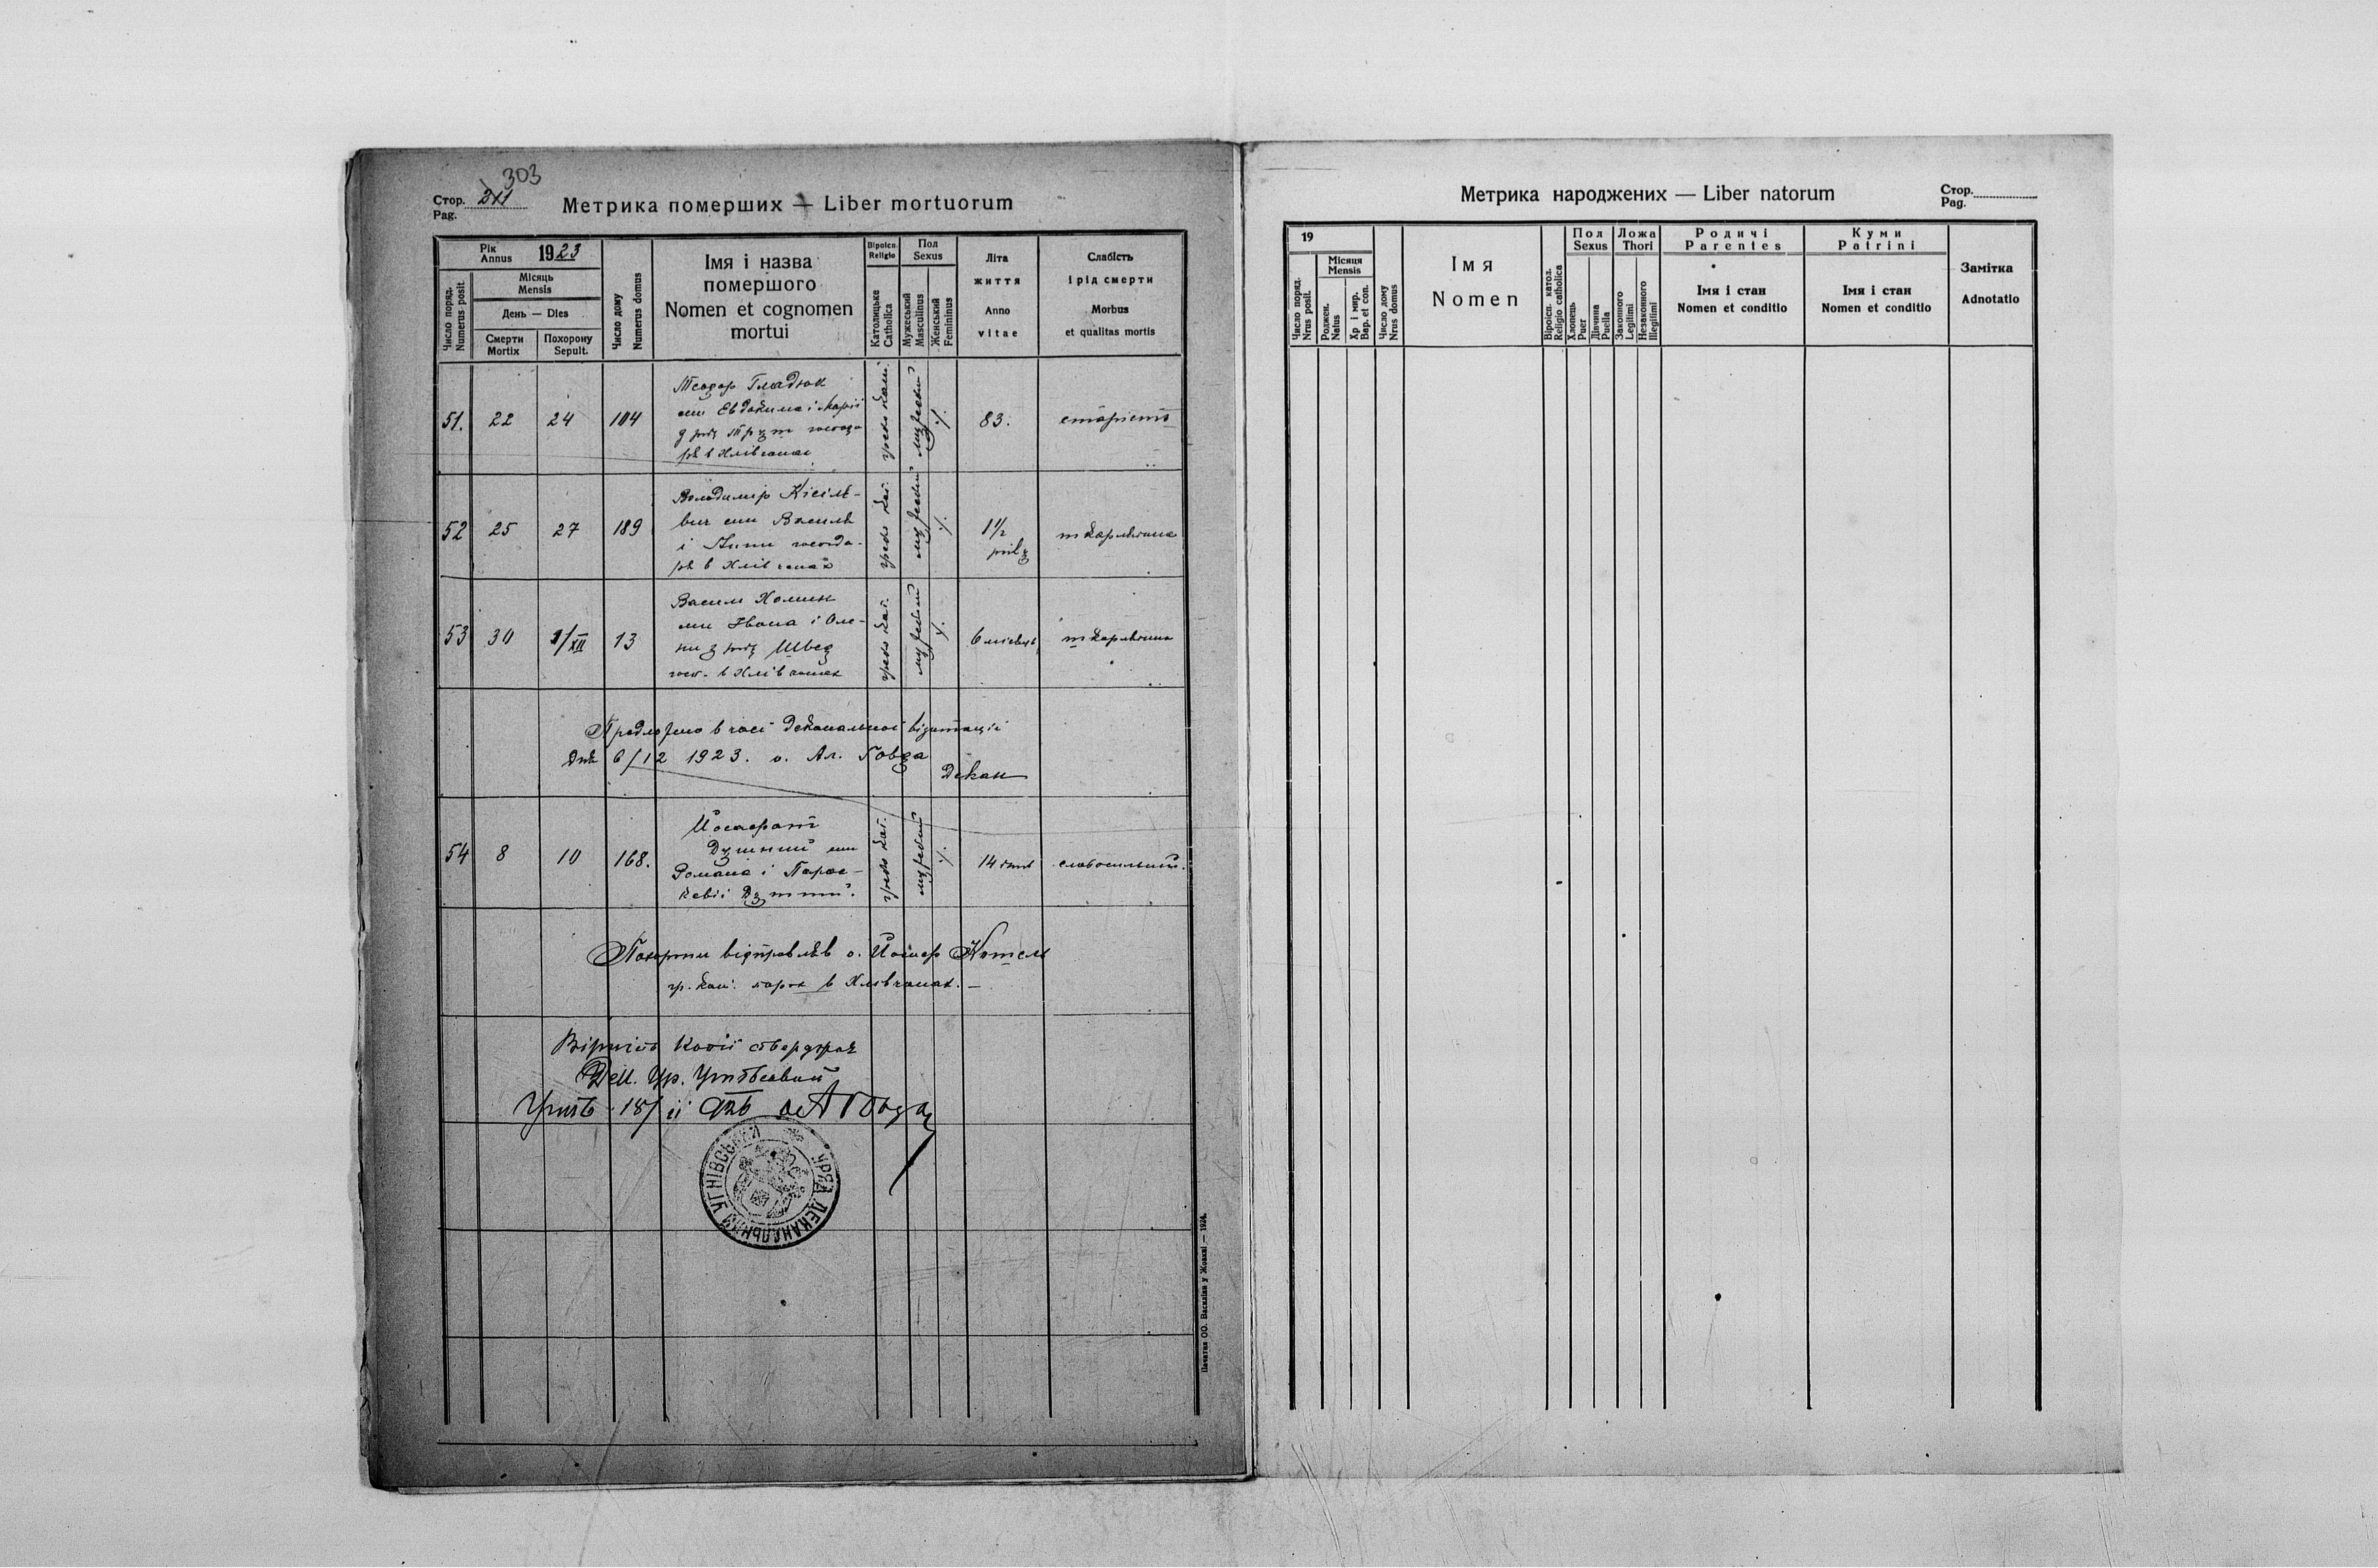 303
Стор. 211
Pag.
Метрика померших — Liber mortuorum
Рік
Annus
1923
Число поряд.
Numerus posit.
Місяць
Mensis
День — Dies
Смерти
Mortix
Похорону
Sepult.
Число дому
Numerus domus
Імя і назва
помершого
Nomen et cognomen
mortui
Віроісп.
Religio
Католицьке
Catholica
Пол
Sexus
Мужеський
Masculinus
Женський
Femininus
Літа
життя
Anno
vitae
Слабість
і рід смерти
Morbus
et qualitas mortis
51. 22 24 104
Теодор Гладюк
син Евдокима і Марії
в Хлівчанах
греко кат.
мужеский
83.
старість
52 25 27 189
Володимір Кісіле-
вич син Василя
і Анни господа-
рів в Хлівчанах
греко кат.
мужеский
1 1/2
року
шкарлятина
53 30 1/XII 13
Василь Хомин
син Івана і Оле-
ни з роду Швед
гос. в Хлівчанах
греко кат.
мужеский
6 місяців
шкарлятина
Предложено в часі деканальної візитації
дня 6/12 1923. о. Ал. Говда
Декан
54 8 10 168.
Йосафат
Душний син
Романа і Парас-
кевії
греко кат.
мужеский
14 днів
слабосильний.
Похорони відправляв о. Йосиф Котель
гр. кат. парох в Хлівчанах. —
Вірність копії стверджає
Дек. Ур. Угнівский
Угнів 18/II
УРЯД ДЕКАНАЛЬНИЙ УГНІВСЬКИЙ
Печатня ОО. Василіян у Жовкві — 1924.
Метрика народжених — Liber natorum
Стор.
Pag.
19
Число поряд.
Nrus posit.
Місяця
Mensis
Роджен.
Natus
Хр і мир.
Bap. et con.
Число дому
Nrus domus
Імя
Nomen
Віроісп. катол.
Religio catholica
Пол
Sexus
Хлопець
Puer
Дівчина
Puella
Ложа
Thori
Законного
Legitimi
Незаконного
Illegitimi
Родичі
Parentes
Імя і стан
Nomen et conditio
Куми
Patrini
Імя і стан
Nomen et conditio
Замітка
Adnotatio